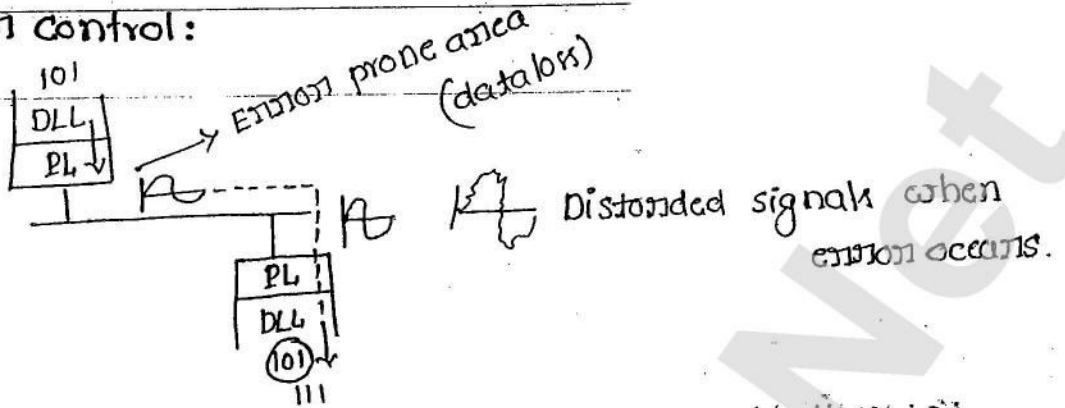 Control:
101
DLL
PL
Error prone area
(data loss)
Distorded signals when
error occurs.
PL
DLL
101
111
Net